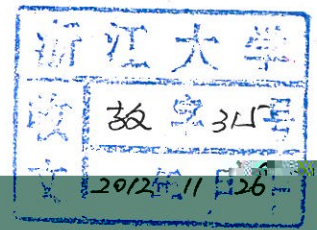 浙江大学
收 教字315号
文 2012年11月26日